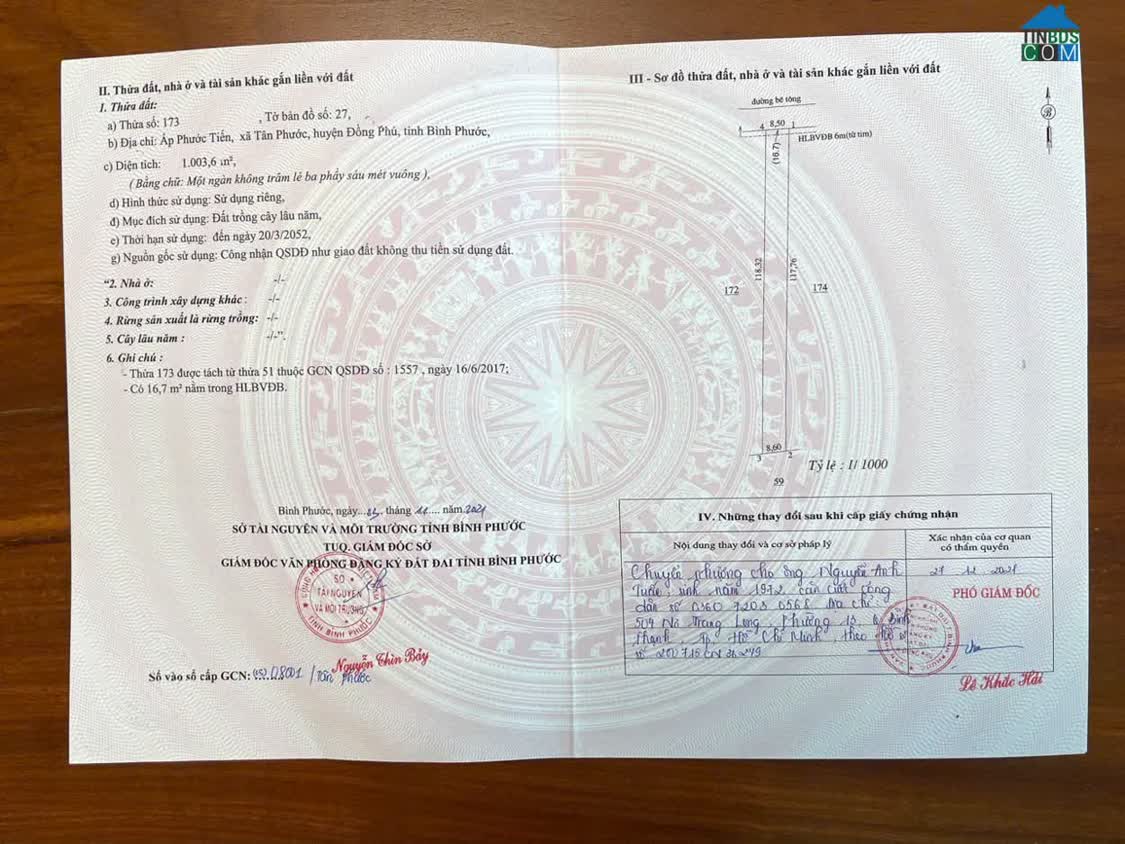 TINBDS
COM
II. Thửa đất, nhà ở và tài sản khác gắn liền với đất
1. Thửa đất:
a) Thửa số: 173 , Tờ bản đồ số: 27,
b) Địa chỉ: Ấp Phước Tiến, xã Tân Phước, huyện Đồng Phú, tỉnh Bình Phước,
c) Diện tích: 1.003,6 m²,
( Bằng chữ: Một ngàn không trăm lẻ ba phẩy sáu mét vuông ),
d) Hình thức sử dụng: Sử dụng riêng,
đ) Mục đích sử dụng: Đất trồng cây lâu năm,
e) Thời hạn sử dụng: đến ngày 20/3/2052,
g) Nguồn gốc sử dụng: Công nhận QSDĐ như giao đất không thu tiền sử dụng đất.
“2. Nhà ở: -/-
3. Công trình xây dựng khác : -/-
4. Rừng sản xuất là rừng trồng: -/-
5. Cây lâu năm : -/-”.
6. Ghi chú :
- Thửa 173 được tách từ thửa 51 thuộc GCN QSDĐ số : 1557 , ngày 16/6/2017;
- Có 16,7 m² nằm trong HLBVĐB.
Bình Phước, ngày... tháng 11.... năm 2021
SỞ TÀI NGUYÊN VÀ MÔI TRƯỜNG TỈNH BÌNH PHƯỚC
TUQ. GIÁM ĐỐC SỞ
GIÁM ĐỐC VĂN PHÒNG ĐĂNG KÝ ĐẤT ĐAI TỈNH BÌNH PHƯỚC
SỞ
TÀI NGUYÊN
VÀ MÔI TRƯỜNG
TỈNH BÌNH PHƯỚC
Nguyễn Thìn Bảy
Số vào sổ cấp GCN: 08001 / Tân Phước
III - Sơ đồ thửa đất, nhà ở và tài sản khác gắn liền với đất
đường bê tông
4 8,50 1
HLBVĐB 6m(từ tim)
(16.7)
B
118,32
117,76
172
174
8,60
3
2
59
Tỷ lệ : 1/ 1000
IV. Những thay đổi sau khi cấp giấy chứng nhận
Nội dung thay đổi và cơ sở pháp lý
Xác nhận của cơ quan
có thẩm quyền
Chuyển nhượng cho ông Nguyễn Anh
Tuấn, sinh năm 1972, căn cước công
dân số 0360 7200 0568 địa chỉ:
504 Nơ Trang Long, Phường 13, Q Bình
Thạnh, Tp. Hồ Chí Minh, theo hồ sơ
số
2021
PHÓ GIÁM ĐỐC
Lê Khắc Hải